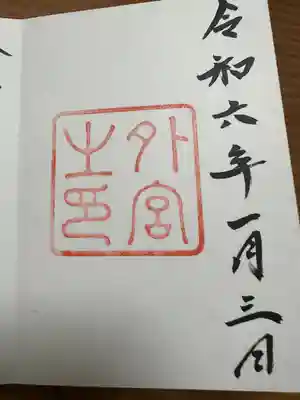 令和六年一月三日
外宮
之印